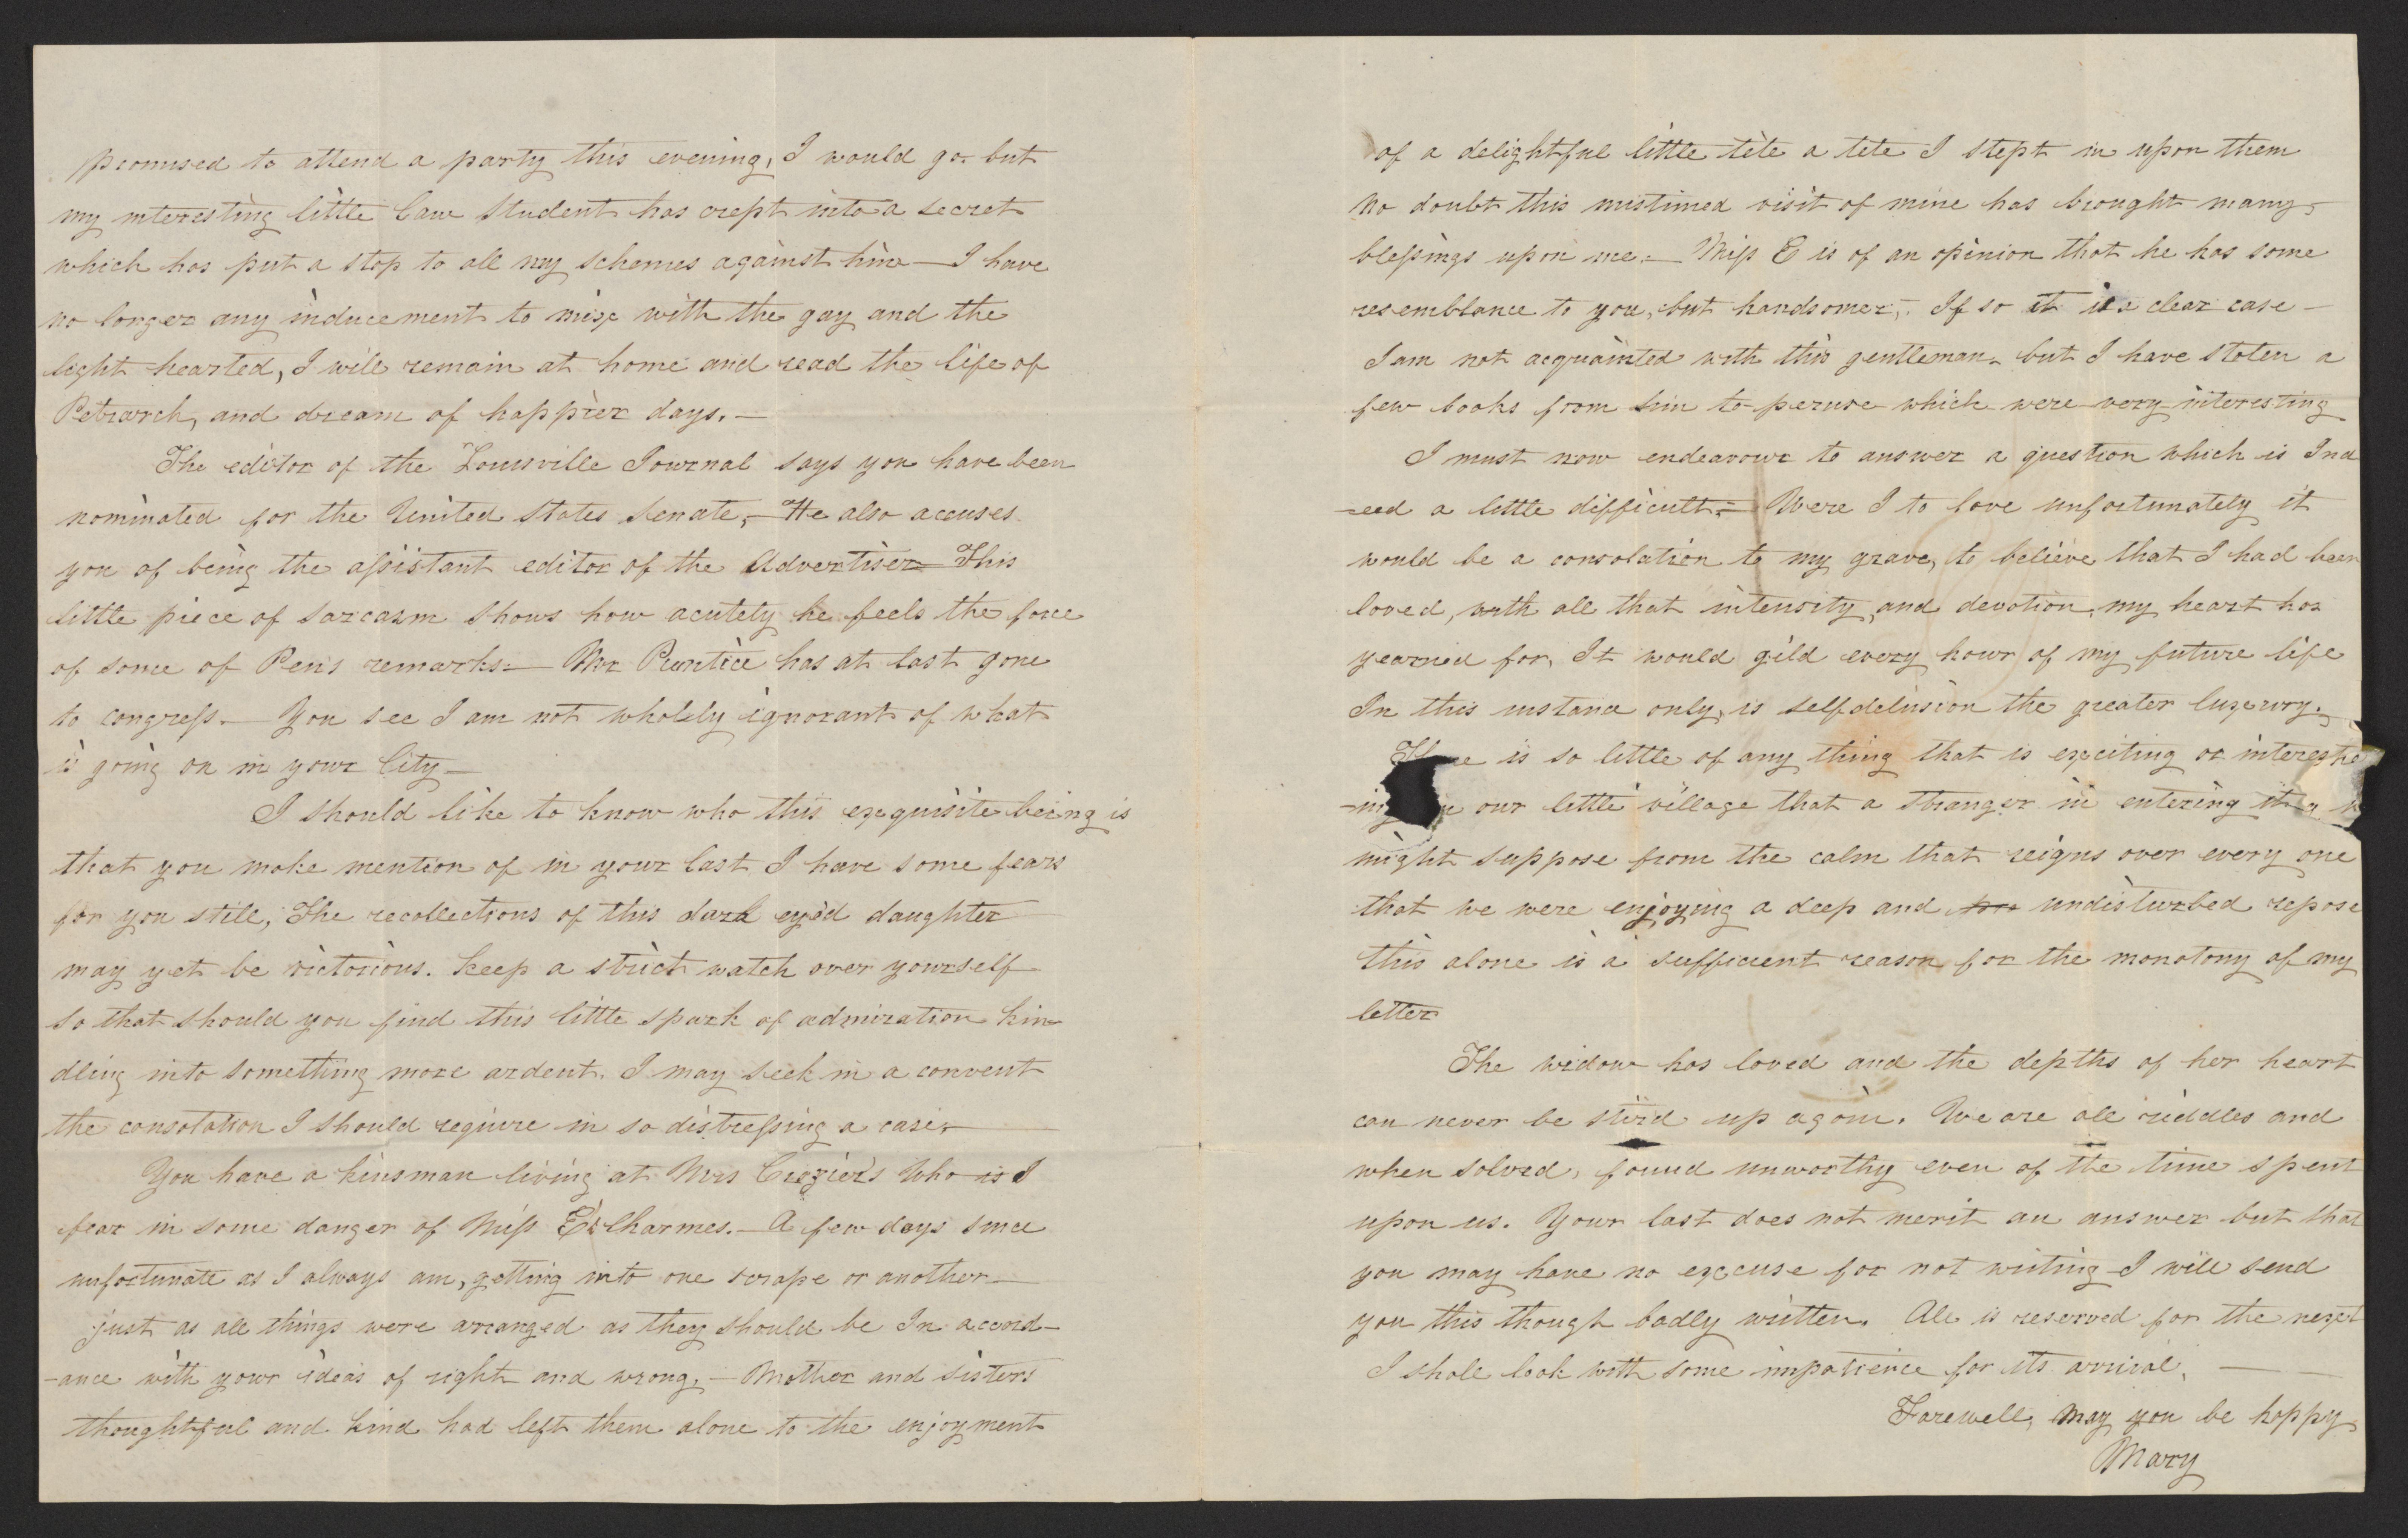 promised to attend a party this evening, I would go. but
my interesting little Law Student has crept into a secret
which has put a stop to all my schemes against him — I have
no longer any inducement to mix with the gay and the
light hearted, I will remain at home and read the life of
Petrarch, and dream of happier days. —
The editor of the Louisville Journal says you have been
nominated for the United States Senate, — He also accuses
you of being the assistant editor of the Advertiser — This
little piece of sarcasm shows how acutely he feels the force
of some of Pen's remarks — Mr Prentice has at last gone
to congress. — You see I am not wholely ignorant of what
is going on in your City —
I should like to know who this exequisite being is
that you make mention of in your last I have some fears
for you still, The recollections of this dark eyed daughter
may yet be victorious. keep a strict watch over yourself
so that should you find this little spark of admiration kin
dling into something more ardent. I may seek in a convent
the consolation I should require in so distressing a case. —
You have a kinsman living at Mrs Crozier's who is I
fear in some danger of Miss E's Charmes. — A few days since
unfortunate as I always am, getting into one scrape or another —
just as all things were arranged as they should be In accord-
-ance with your ideas of right and wrong, — Mother and sisters
thoughtful and kind had left them alone to the enjoyment
of a delightful little tete a tete I stept in upon them
no doubt this mistimed visit of mine has brought many
blessings upon me. — Miss E is of an opinion that he has some
resemblance to you, but handsomer, If so it is a clear case —
I am not acquainted with this gentleman, but I have stolen a
few books from him to peruse which were very interesting
I must now endeavour to answer a question which is Ind
-eed a little difficult. — Were I to love unfortunately it
would be a consolation to my grave, to believe that I had been
loved, with all that intensity, and devotion, my heart has
yearned for, It would gild every hour of my future life
In this instance only, is selfdelusion the greater luxewry.
is so little of any thing that is exciting or interest
our little village that a stranger in entering it
might suppose from the calm that reigns over every one
that we were enjoying a deep and undisturbed repose
this alone is a sufficient reason for the monotony of my
letter
The widow has loved and the depths of her heart
can never be stird up again. We are all riddles and
when solved, found unworthy even of the time spent
upon us. Your last does not merit an answer but that
you may have no exccuse for not writing I will send
you this though badly written. All is reserved for the next
I shall look with some impatience for its arrival, —
Farewell, May you be happy,
Mary